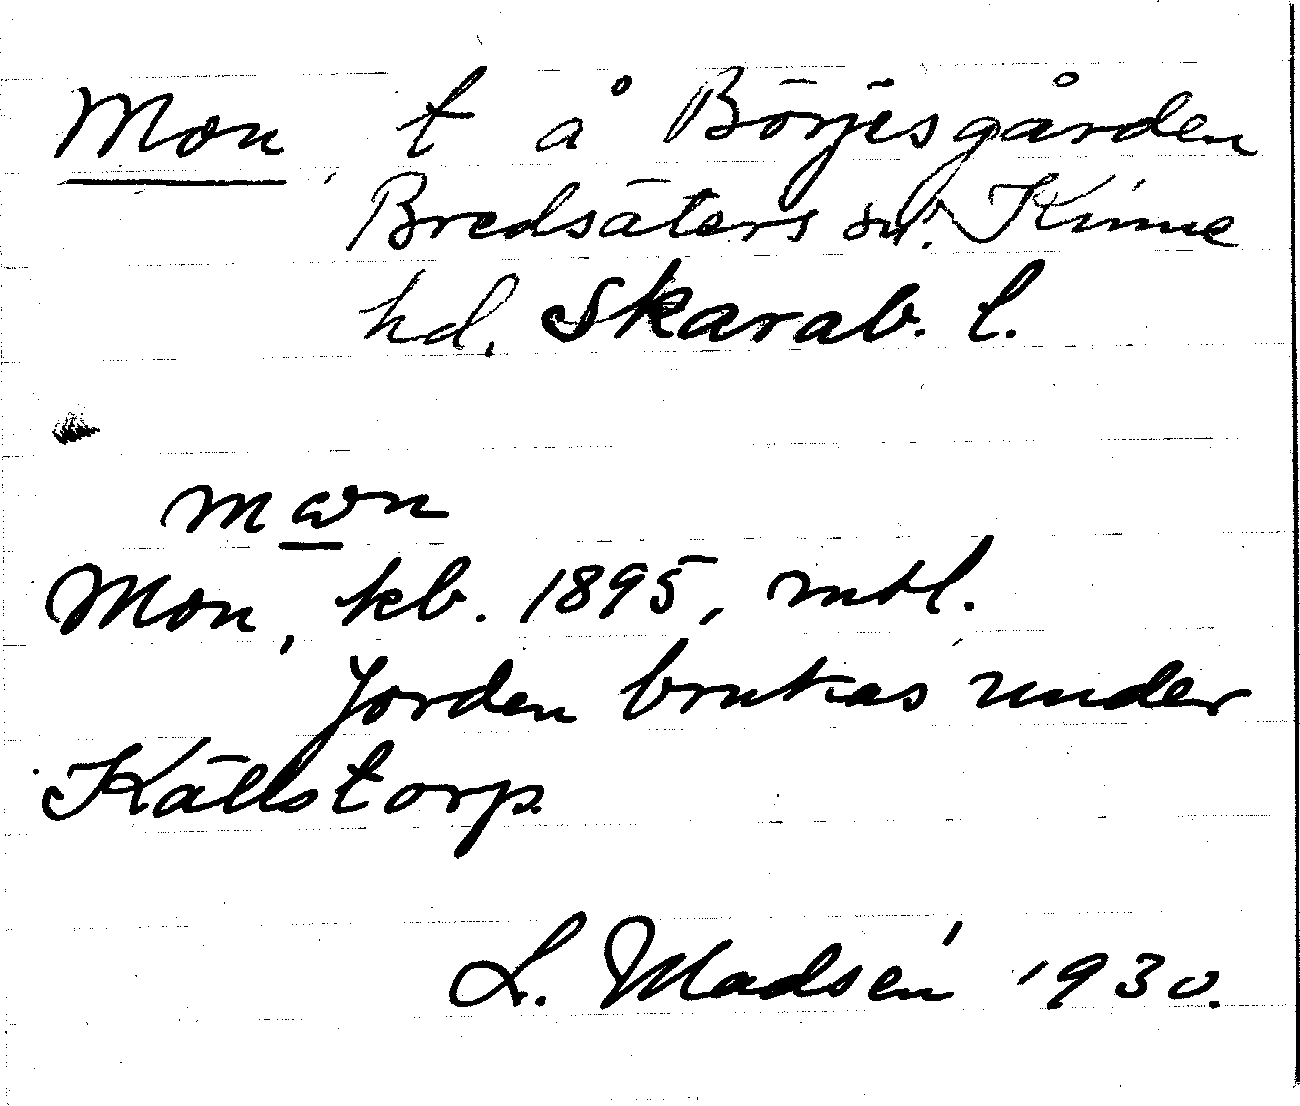 Mon t å Börjesgården
Bredsäters sn. Kinne
hd. Skarab. l.
Mon, kb. 1895, mtl.
Jorden brukas under
Källstorp.
L. Madsén 1930.